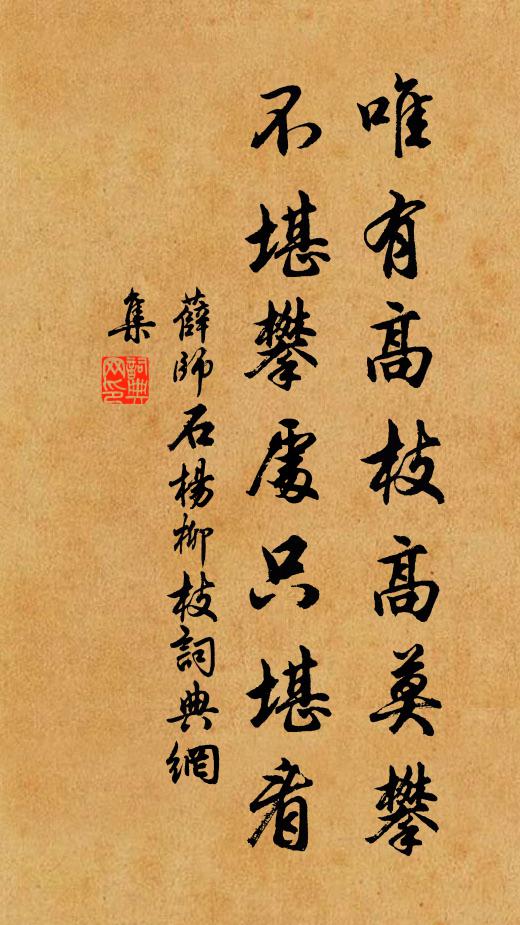 唯有高枝高莫攀
不堪攀處只堪看
薛師石楊柳枝詞典網
集
詞典網印